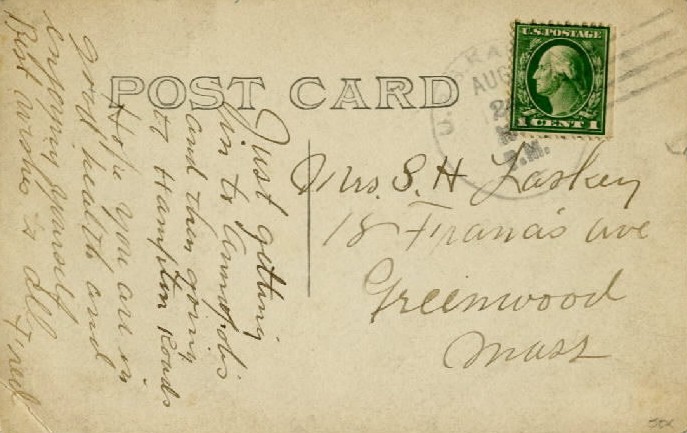 POST CARD
U.S. POSTAGE
1 CENT 1
AUG
M.
Just getting
in to Annapolis
and then going
to Hampton Roads
Hope you are in
good health and
enjoying yourself
Best wishes to all
Fred
Mrs. S. H Laskey
18 Francis ave
Greenwood
Mass